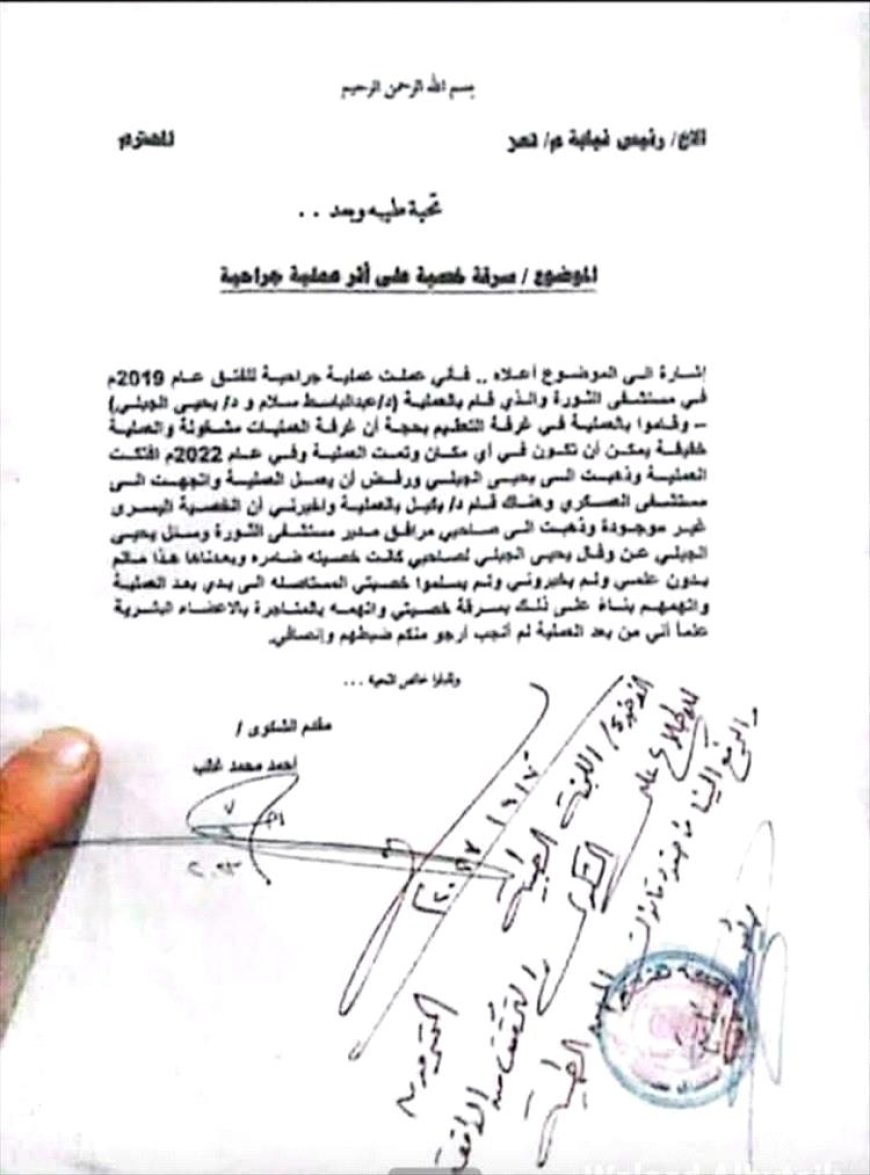 بسم الله الرحمن الرحيم
الاخ/ رئيس نيابة م/ تعز المحترم
تحية طيبه وبعد ..
الموضوع / سرقة خصية على أثر عملية جراحية
إشارة الى الموضوع أعلاه .. فأني عملت عملية جراحية للفتق عام 2019م
في مستشفى الثورة والذي قام بالعملية (د/عبدالباسط سلام و د/ يحيى الجبلي)
– وقاموا بالعملية في غرفة التعقيم بحجة أن غرفة العمليات مشغولة والعملية
خفيفة يمكن أن تكون في أي مكان وتمت العملية وفي عام 2022م افتكت
العملية وذهبت الى يحيى الجبلي ورفض أن يعمل العملية واتجهت الى
مستشفى العسكري وهناك قام د/ بكيل بالعملية واخبرني أن الخصية اليسرى
غير موجودة وذهبت الى صاحبي مرافق مدير مستشفى الثورة وسئل يحيى
الجبلي عن وقال يحيى الجبلي لصاحبي كانت خصيته ضامره وبعدناها هذا مالم
بدون علمي ولم يخبروني ولم يسلموا خصيتي المستاصله الى يدي بعد العملية
واتهمهم بناءً على ذلك بسرقة خصيتي واتهمه بالمتاجرة بالاعضاء البشرية
علماً أني من بعد العملية لم أنجب ارجو منكم ضبطهم وإنصافي.
وتقبلوا خالص التحيه ...
مقدم الشكوى /
احمد محمد غالب
اللجنة الطبية
للاطلاع على الشكوى
والرفع الينا